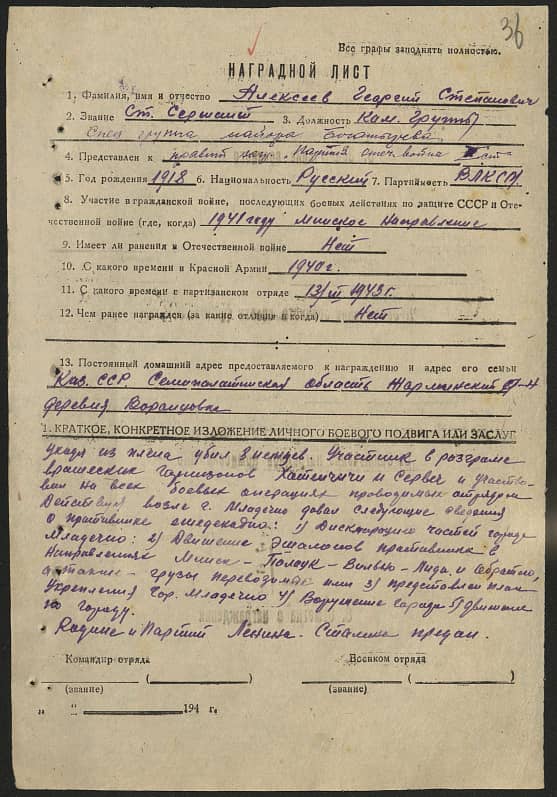 36
Все графы заполнять полностью.
НАГРАДНОЙ ЛИСТ
1. Фамилия, имя и отчество Алексеев Георгий Степанович
2. Звание Ст. Сержант 3. Должность Ком. Группы
Спец группа майора
4. Представлен к прав
5. Год рождения 1918 6. Национальность Русский 7. Партийность ВЛКСМ
8. Участие в гражданской войне, последующих боевых действиях по защите СССР и Оте-
чественной войне (где, когда) 1941 году Минское направление
9. Имеет ли ранения в Отечественной войне Нет
10. С какого времени в Красной Армии 1940 г.
11. С какого времени в партизанском отряде 13/III 1943 г.
12. Чем ранее награжден (за какие отличия и когда) Нет
13. Постоянный домашний адрес предоставляемого к награждению и адрес его семьи
Каз. ССР. Семипалатинская область Жарминский р-н
деревня Воранцовка
1. КРАТКОЕ, КОНКРЕТНОЕ ИЗЛОЖЕНИЕ ЛИЧНОГО БОЕВОГО ПОДВИГА ИЛИ ЗАСЛУГ
Уходя из плена убил 8 немцев. Участник в разгроме
вражеских гарнизонов Хатенчичи и Сервеч и участво-
вал на всех боевых операциях проводимых отрядом
Действуя возле г. Молодечно давал следующие сведения
о противнике ежедекадно: 1) Дислокацию частей города
Молодечно: 2) Движение эшалонов противника в
направлениях Минск - Полоцк - Вильно - Лида, и обратно,
а также - грузы переводимые ими 3) представлен план
Укрепления Гор. Молодечно 4) Вооружение города 5) движение
по городу.
Родине и Партии Ленина - Сталина предан.
Командир отряда Военком отряда
( ) ( )
(звание) (звание)
" " 194 г.